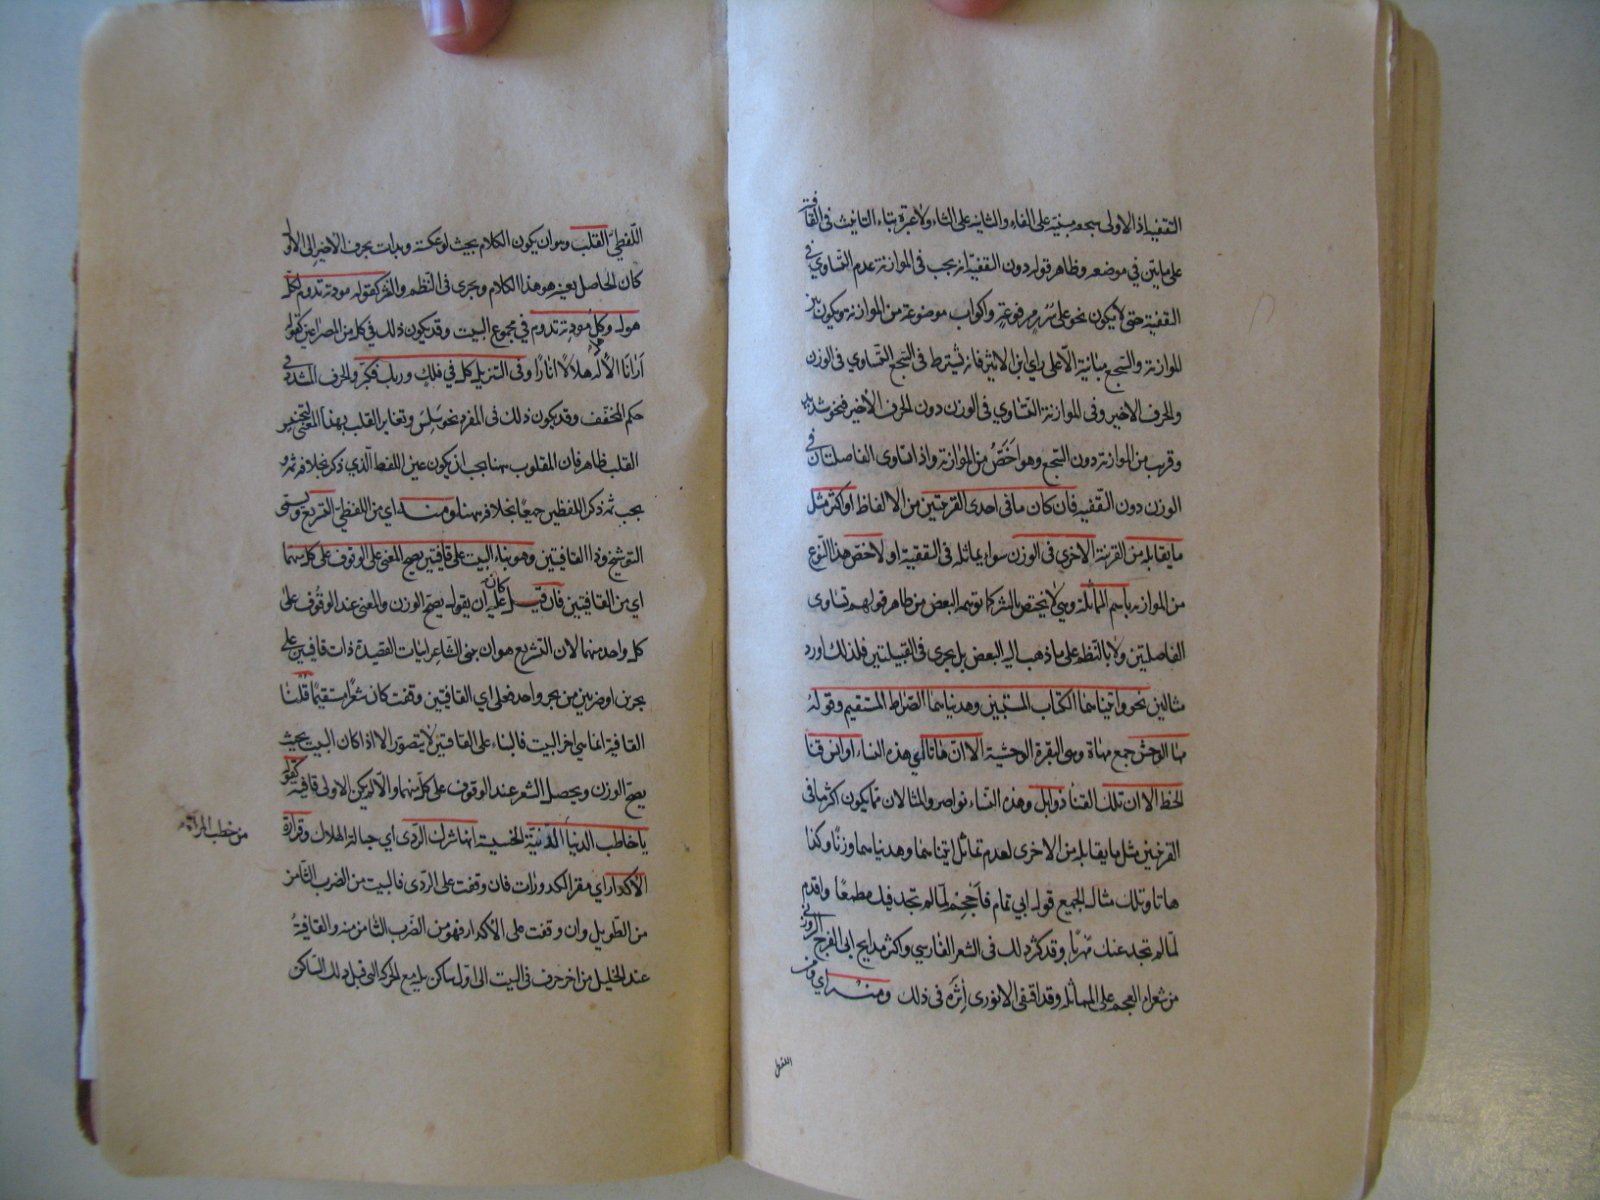 التقفية اذ الاولى سجعه مبنية على الفاء والثانية على الثاء ولا عبرة بتاء التانيث فى القافية
على ما بيّن في موضعه وظاهر قوله دون التقفية انه يجب فى الموازنة عدم التّساوي في
القفية حتى لا يكون نحو على سُرُرٍ مرفوعةٍ واكواب موضوعة من الموازنة ويكون بين
الموازنة والسجع مباينة الّا على راي ابن الاثير فانه يشترط فى السجع التساوي فى الوزن
والحرف الاخير وفى الموازنة التساوي فى الوزن دون الحرف الأخير فنحو شديد
وقريب من الموازنة دون السّجع وهو اخَصّ من الموازنة واذا تساوى الفاصلتان في
الوزن دون التقفية فان كان ما فى احدى القرينتين من الالفاظ او اكثره مثل
ما يقابله من القرينة الاخرى فى الوزن سواء يماثله فى التقفية او لا خصّ هذا النّوع
من الموازنة باسم المماثلة وهي لا يختص بالنثر كما توهمه البعض من ظاهر قولهم تساوى
الفاصلتين ولا بالنظم على ما ذهب اليه البعض بل يجرى فى القبيلتين فلذلك اورد
مثالين نحو واتيناهما الكتاب المستبين وهديناهما الصّراط المستقيم وقوله
مها الوحش جمع مهاة وهى البقرة الوحشية الا ان هاتا اي هذه النساء اوانس قنا
الخط الا ان تلك القنا ذوابل وهذه النساء نواضر والمثالان مما يكون اكثر ما فى
القرينتين مثل ما يقابله من الاخرى لعدم تماثل اتيناهما وهديناهما وزنًا وكذا
هاتا وتلك مثال الجميع قول ابي تمام فاحجم لمّا لم يجد فيك مطمعًا واقدم
لمّا لم يجد عنك مهربًا وقد كثر ذلك فى الشعر الفارسي واكثر مدايح ابى الفرج الرونى
من شعراء العجم على المماثلة وقد اقتفى الانورى أثره فى ذلك ومنه اي ومن
اللفظى
اللّفظيّ القلب وهو ان يكون الكلام بحيث لو عكسته وبدات بحرف الاخير الى الاول
كان الحاصل بعينه هو هذا الكلام ويجرى فى النّظم والنثر كقوله مودته تدوم لكل
هول وكل مودته تدوم في مجموع البيت وقد يكون ذلك في كل من المصراعين كقوله
أرانا الأله هلالًا انارا وفى التنزيل كل في فلك وربك فكبّر والحرف المشدد في
حكم المخفف وقد يكون ذلك فى المفرد نحو سلس وتغاير القلب بهذا المعنى لتجنيس
القلب ظاهر فان المقلوب ههنا يجب ان يكون عين اللفظ الّذي ذكر بخلافه ثمه و
يجب ثمه ذكر اللفظين جميعًا بخلافه ههنا ومنه اي من اللفظيّ التشريع ويسمّى
التوشيح وذا القافيتين وهو بناء البيت على قافيتين يصح المعنى على الوقوف على كل منهما
اي من القافيتين فان قيل كان عليه ان يقول يصح الوزن والمعنى عند الوقوف على
كل واحد منهما لان التشريع هو ان يبنى الشاعر ابيات القصيدة ذات قافيتين على
بحرين او ضربين من بحر واحد فعلى اي القافيتين وقفت كان شعرًا مستقيمًا قلنا
القافية انما هي اخر البيت فالبناء على القافيتين لا يتصوّر الا اذا كان البيت بحيث
يصح الوزن ويحصل الشعر عند الوقوف على كل منهما والّا لم يكن الاولى قافية كقوله
يا خاطب الدنيا الدّنيّة الخسيسة انها شرك الرّدى اي حبالة الهلاك وقرارة
من خطب المراة
الأكدار اي مقر الكدورات فان وقفت على الردى فالبيت من الضرب الثامن
من الطّويل وان وقفت على الأكدار فهو من الضرب الثامن منه والقافية
عند الخليل من اخر حرف فى البيت الى اوّل ساكن يليه مع الحركة التى قبل ذلك السّاكن